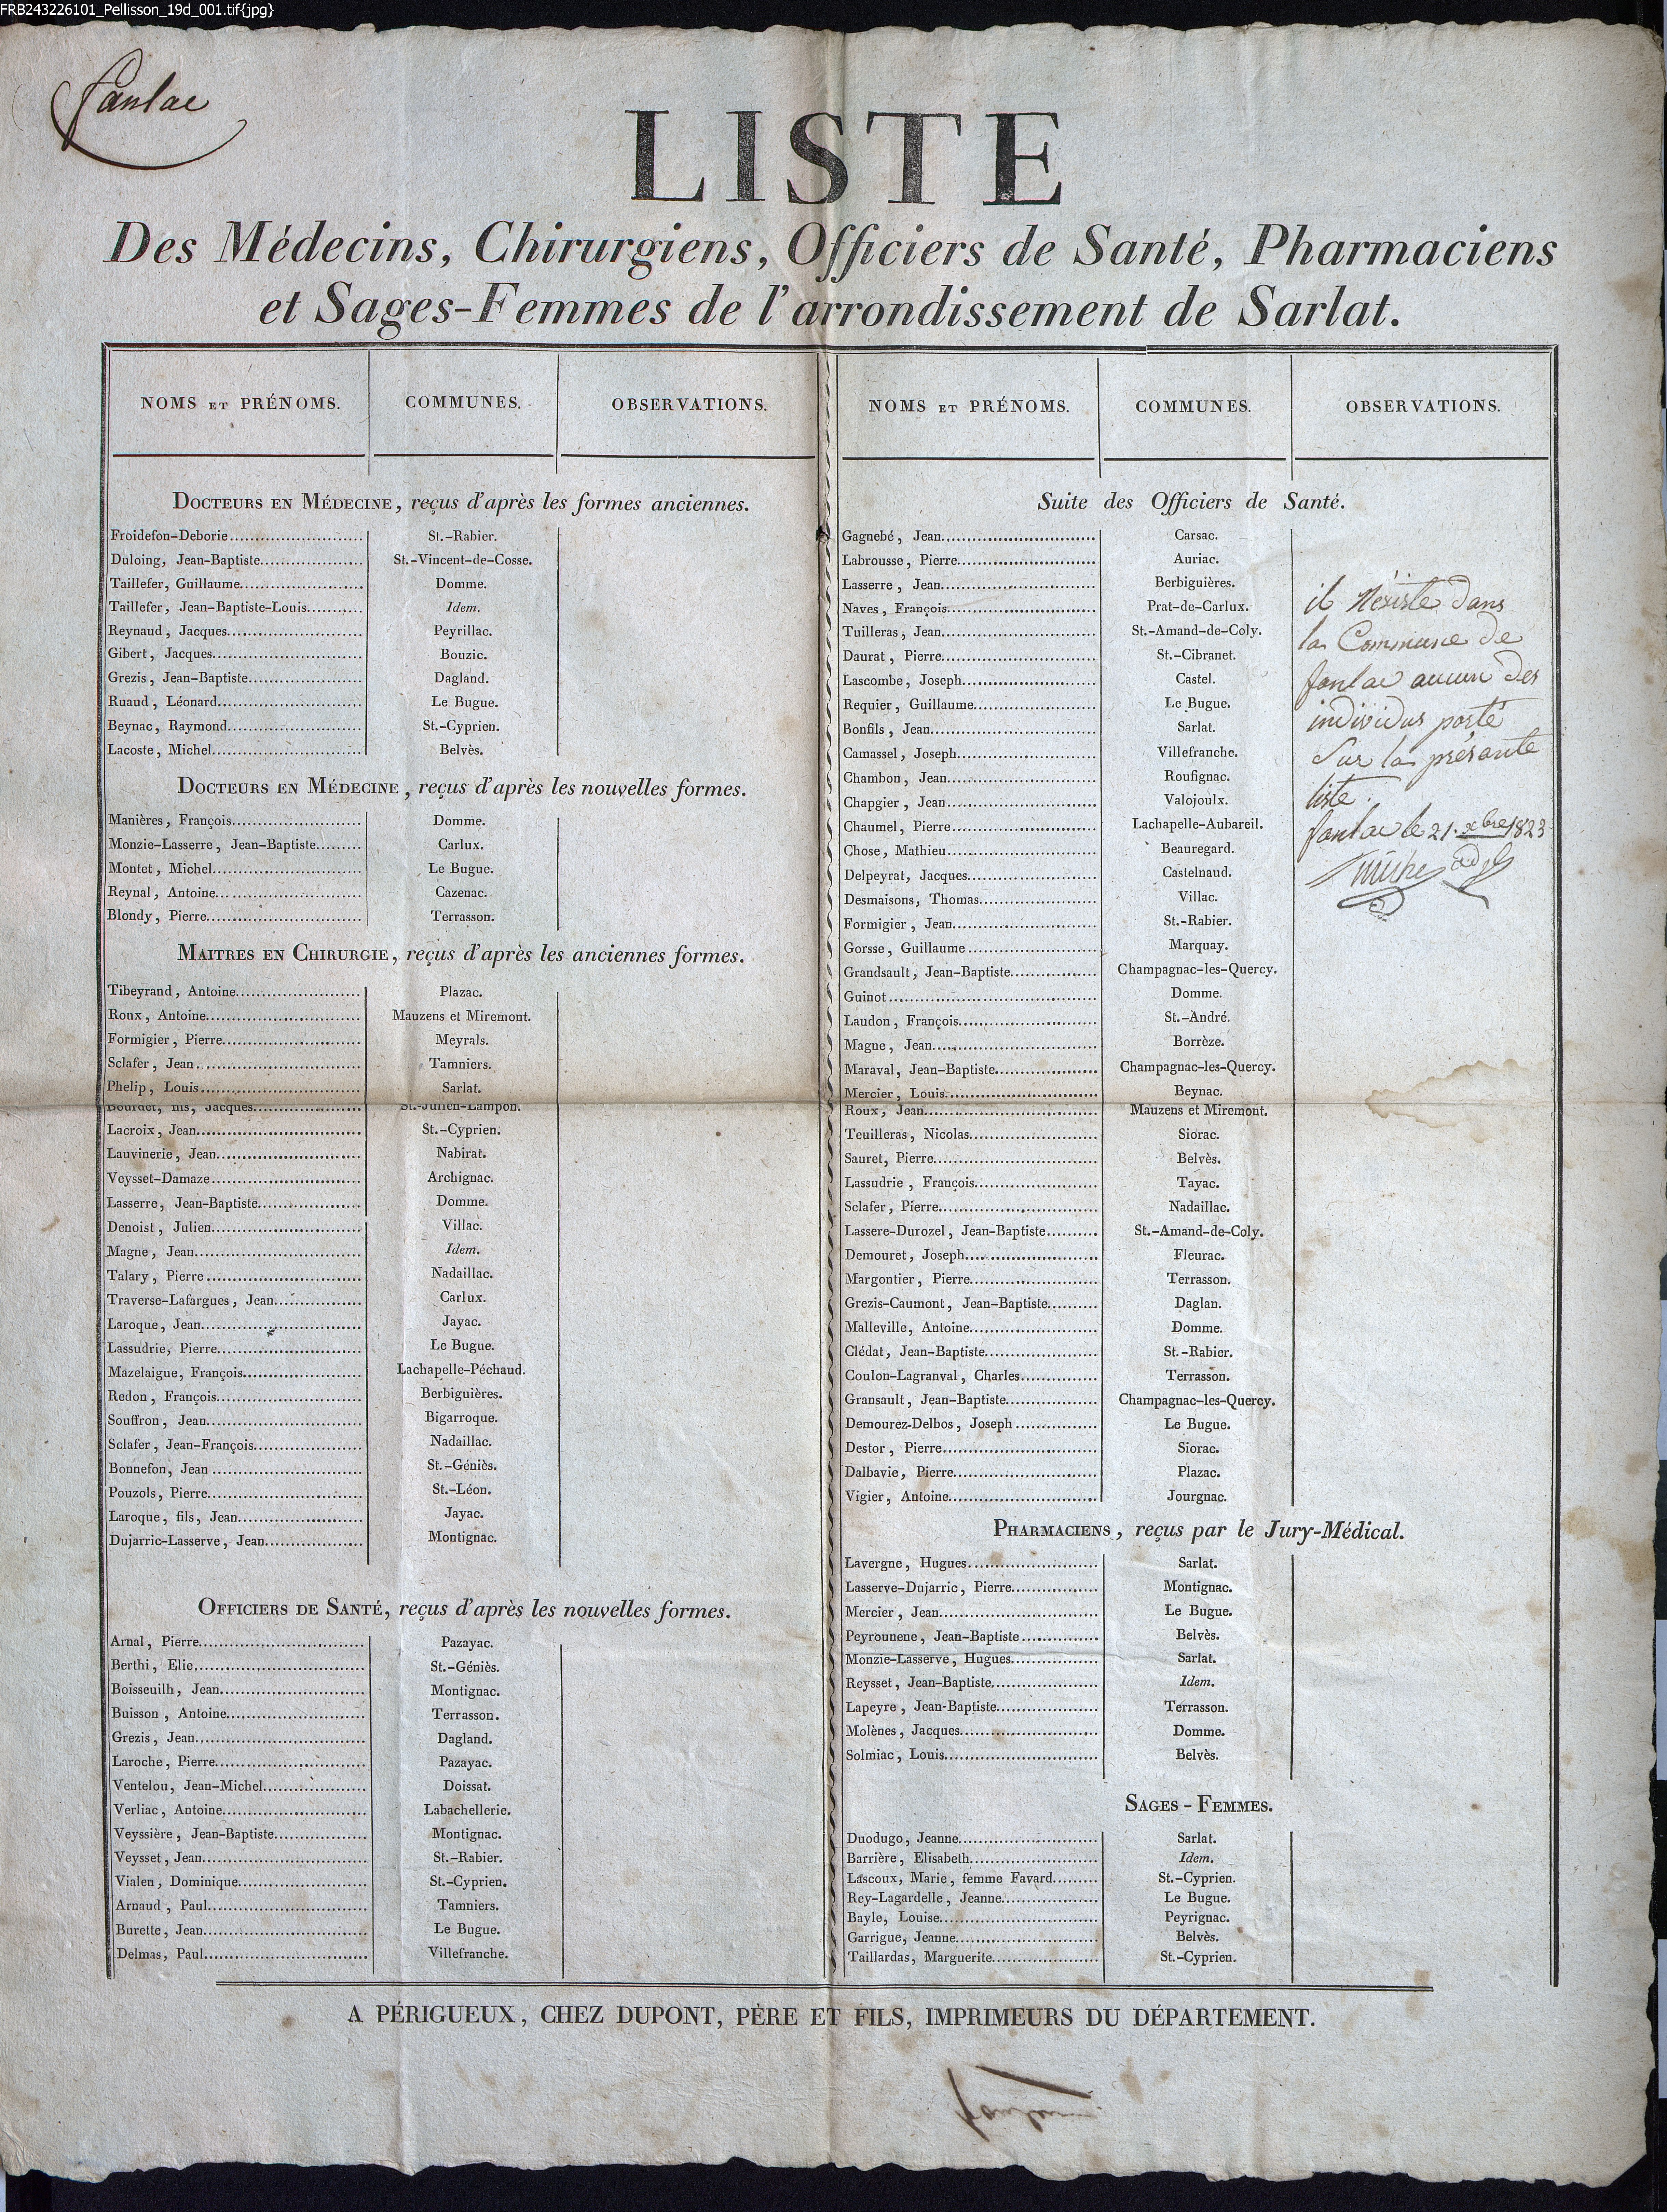 FRB243226101_Pellisson_19d_001.tif{jpg}
fanlac
LISTE
Des Médecins, Chirurgiens, Officiers de Santé, Pharmaciens
et Sages-Femmes de l'arrondissement de Sarlat.
NOMS ET PRÉNOMS. COMMUNES. OBSERVATIONS.
DOCTEURS EN MÉDECINE, reçus d'après les formes anciennes.
Froidefon-Deborie St.-Rabier.
Duloing, Jean-Baptiste St.-Vincent-de-Cosse.
Taillefer, Guillaume Domme.
Taillefer, Jean-Baptiste-Louis Idem.
Reynaud, Jacques Peyrillac.
Gibert, Jacques Bouzic.
Grezis, Jean-Baptiste Dagland.
Ruaud, Léonard Le Bugue.
Beynac, Raymond St.-Cyprien.
Lacoste, Michel Belvès.
DOCTEURS EN MÉDECINE, reçus d'après les nouvelles formes.
Manières, François Domme.
Monzie-Lasserre, Jean-Baptiste Carlux.
Montet, Michel Le Bugue.
Reynal, Antoine Cazenac.
Blondy, Pierre Terrasson.
MAITRES EN CHIRURGIE, reçus d'après les anciennes formes.
Tibeyrand, Antoine Plazac.
Roux, Antoine Mauzens et Miremont.
Formigier, Pierre Meyrals.
Sclafer, Jean Tamniers.
Phelip, Louis Sarlat.
Bourdet, fils, Jacques St.-Julien-Lampon.
Lacroix, Jean St.-Cyprien.
Lauvinerie, Jean Nabirat.
Veysset-Damaze Archignac.
Lasserre, Jean-Baptiste Domme.
Denoist, Julien Villac.
Magne, Jean Idem.
Talary, Pierre Nadaillac.
Traverse-Lafargues, Jean Carlux.
Laroque, Jean Jayac.
Lassudrie, Pierre Le Bugue.
Mazelaigue, François Lachapelle-Péchaud.
Redon, François Berbiguières.
Souffron, Jean Bigarroque.
Sclafer, Jean-François Nadaillac.
Bonnefon, Jean St.-Géniès.
Pouzols, Pierre St.-Léon.
Laroque, fils, Jean Jayac.
Dujarric-Lasserve, Jean Montignac.
OFFICIERS DE SANTÉ, reçus d'après les nouvelles formes.
Arnal, Pierre Pazayac.
Berthi, Elie St.-Géniès.
Boisseuilh, Jean Montignac.
Buisson, Antoine Terrasson.
Grezis, Jean Dagland.
Laroche, Pierre Pazayac.
Ventelou, Jean-Michel Doissat.
Verliac, Antoine Labachellerie.
Veyssière, Jean-Baptiste Montignac.
Veysset, Jean St.-Rabier.
Vialen, Dominique St.-Cyprien.
Arnaud, Paul Tamniers.
Burette, Jean Le Bugue.
Delmas, Paul Villefranche.
NOMS ET PRÉNOMS. COMMUNES. OBSERVATIONS.
Suite des Officiers de Santé.
Gagnebé, Jean Carsac.
Labrousse, Pierre Auriac.
Lasserre, Jean Berbiguières.
Naves, François Prat-de-Carlux.
Tuilleras, Jean St.-Amand-de-Coly.
Daurat, Pierre St.-Cibranet.
Lascombe, Joseph Castel.
Requier, Guillaume Le Bugue.
Bonfils, Jean Sarlat.
Camassel, Joseph Villefranche.
Chambon, Jean Roufignac.
Chapgier, Jean Valojoulx.
Chaumel, Pierre Lachapelle-Aubareil.
Chose, Mathieu Beauregard.
Delpeyrat, Jacques Castelnaud.
Desmaisons, Thomas Villac.
Formigier, Jean St.-Rabier.
Gorsse, Guillaume Marquay.
Grandsault, Jean-Baptiste Champagnac-les-Quercy.
Guinot Domme.
Laudon, François St.-André.
Magne, Jean Borrèze.
Maraval, Jean-Baptiste Champagnac-les-Quercy.
Mercier, Louis Beynac.
Roux, Jean Mauzens et Miremont.
Teuilleras, Nicolas Siorac.
Sauret, Pierre Belvès.
Lassudrie, François Tayac.
Sclafer, Pierre Nadaillac.
Lassere-Durozel, Jean-Baptiste St.-Amand-de-Coly.
Demouret, Joseph Fleurac.
Margontier, Pierre Terrasson.
Grezis-Caumont, Jean-Baptiste Daglan.
Malleville, Antoine Domme.
Clédat, Jean-Baptiste St.-Rabier.
Coulon-Lagranval, Charles Terrasson.
Gransault, Jean-Baptiste Champagnac-les-Quercy.
Demourez-Delbos, Joseph Le Bugue.
Destor, Pierre Siorac.
Dalbavie, Pierre Plazac.
Vigier, Antoine Jourgnac.
il N'existe dans
la Commune de
fanlac aucun des
individus porté
Sur la présante
liste.
fanlac le 21. xbre 1823
PHARMACIENS, reçus par le Jury-Médical.
Lavergne, Hugues Sarlat.
Lasserve-Dujarric, Pierre Montignac.
Mercier, Jean Le Bugue.
Peyrounene, Jean-Baptiste Belvès.
Monzie-Lasserve, Hugues Sarlat.
Reysset, Jean-Baptiste Idem.
Lapeyre, Jean-Baptiste Terrasson.
Molènes, Jacques Domme.
Solmiac, Louis Belvès.
SAGES-FEMMES.
Duodugo, Jeanne Sarlat.
Barrière, Elisabeth Idem.
Lascoux, Marie, femme Favard St.-Cyprien.
Rey-Lagardelle, Jeanne Le Bugue.
Bayle, Louise Peyrignac.
Garrigue, Jeanne Belvès.
Taillardas, Marguerite St.-Cyprien.
A PÉRIGUEUX, CHEZ DUPONT, PÈRE ET FILS, IMPRIMEURS DU DÉPARTEMENT.